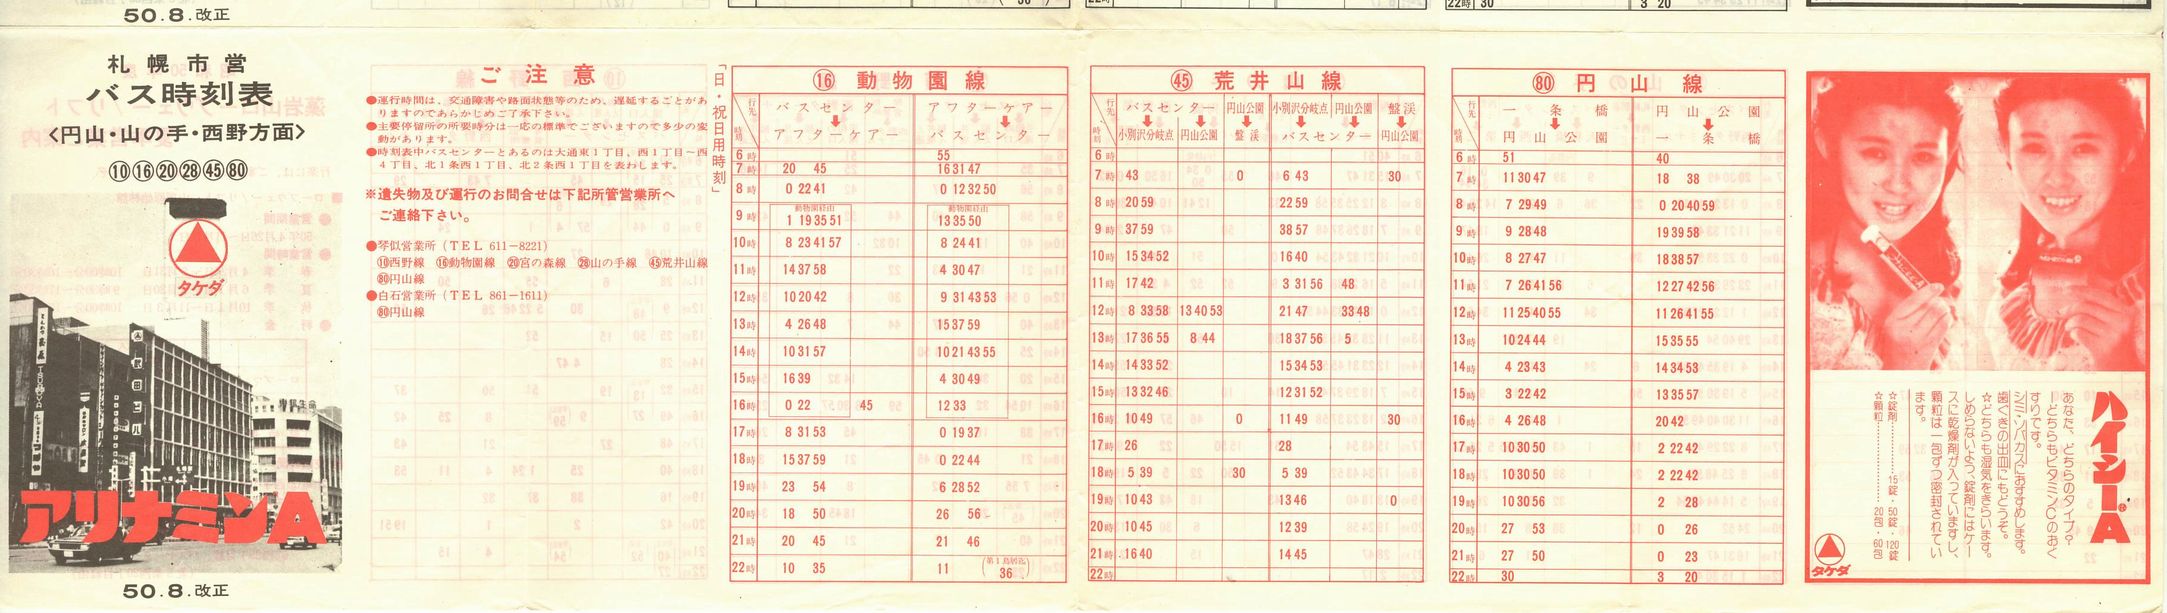 50.8.改正
22時 30 3 20
札幌市営
バス時刻表
〈円山・山の手・西野方面〉
⑩⑯⑳㉘㊺80
タケダ
アリナミンA
50.8.改正
ご注意
●運行時間は、交通障害や路面状態等のため、遅延することがあ
りますのであらかじめご了承下さい。
●主要停留所の所要時分は一応の標準でございますので多少の変
動があります。
●時刻表中バスセンターとあるのは大通東1丁目、西1丁目〜西
4丁目、北1条西1丁目、北2条西1丁目を表わします。
※遺失物及び運行のお問合せは下記所管営業所へ
ご連絡下さい。
●琴似営業所(TEL 611-8221)
⑩西野線 ⑯動物園線 ⑳宮の森線 ㉘山の手線 ㊺荒井山線
80円山線
●白石営業所(TEL 861-1611)
80円山線
「日・祝日用時刻」
⑯ 動物園線
行先 バスセンター アフターケアー
⬇ ⬇
時刻 アフターケアー バスセンター
6時 55
7時 20 45 16 31 47
8時 0 22 41 0 12 32 50
動物園経由 動物園経由
9時 1 19 35 51 13 35 50
10時 8 23 41 57 8 24 41
11時 14 37 58 4 30 47
12時 10 20 42 9 31 43 53
13時 4 26 48 15 37 59
14時 10 31 57 10 21 43 55
15時 16 39 4 30 49
16時 0 22 45 12 33
17時 8 31 53 0 19 37
18時 15 37 59 0 22 44
19時 23 54 6 28 52
20時 18 50 26 56
21時 20 45 21 46
22時 10 35 11 (第1鳥居迄 36)
㊺ 荒井山線
行先 バスセンター 円山公園 小別沢分岐点 円山公園 盤渓
⬇ ⬇ ⬇ ⬇
時刻 小別沢分岐点 円山公園 盤渓 バスセンター 円山公園
6時
7時 43 0 6 43 30
8時 20 59 22 59
9時 37 59 38 57
10時 15 34 52 16 40
11時 17 42 3 31 56 48
12時 8 33 58 13 40 53 21 47 33 48
13時 17 36 55 8 44 18 37 56 5
14時 14 33 52 15 34 53
15時 13 32 46 12 31 52
16時 10 49 0 11 49 30
17時 26 28
18時 5 39 30 5 39
19時 10 43 13 46 0
20時 10 45 12 39
21時 16 40 14 45
22時
80 円山線
行先 一条橋 円山公園
⬇ ⬇
時刻 円山公園 一条橋
6時 51 40
7時 11 30 47 18 38
8時 7 29 49 0 20 40 59
9時 9 28 48 19 39 58
10時 8 27 47 18 38 57
11時 7 26 41 56 12 27 42 56
12時 11 25 40 55 11 26 41 55
13時 10 24 44 15 35 55
14時 4 23 43 14 34 53
15時 3 22 42 13 35 57
16時 4 26 48 20 42
17時 10 30 50 2 22 42
18時 10 30 50 2 22 42
19時 10 30 56 2 28
20時 27 53 0 26
21時 27 50 0 23
22時 30 3 20
ハイシーA
あなた、どちらのタイプ?
―どちらもビタミンCのおく
すりです。
シミ・ソバカスにおすすめします。
歯ぐきの出血にもどうぞ。
☆どちらも湿気をきらいます。
しめらないよう、錠剤にはケー
スに乾燥剤が入っていますし、
顆粒は一包ずつ密封されてい
ます。
☆錠剤……15錠・50錠・120錠
☆顆粒……20包・60包
タケダ